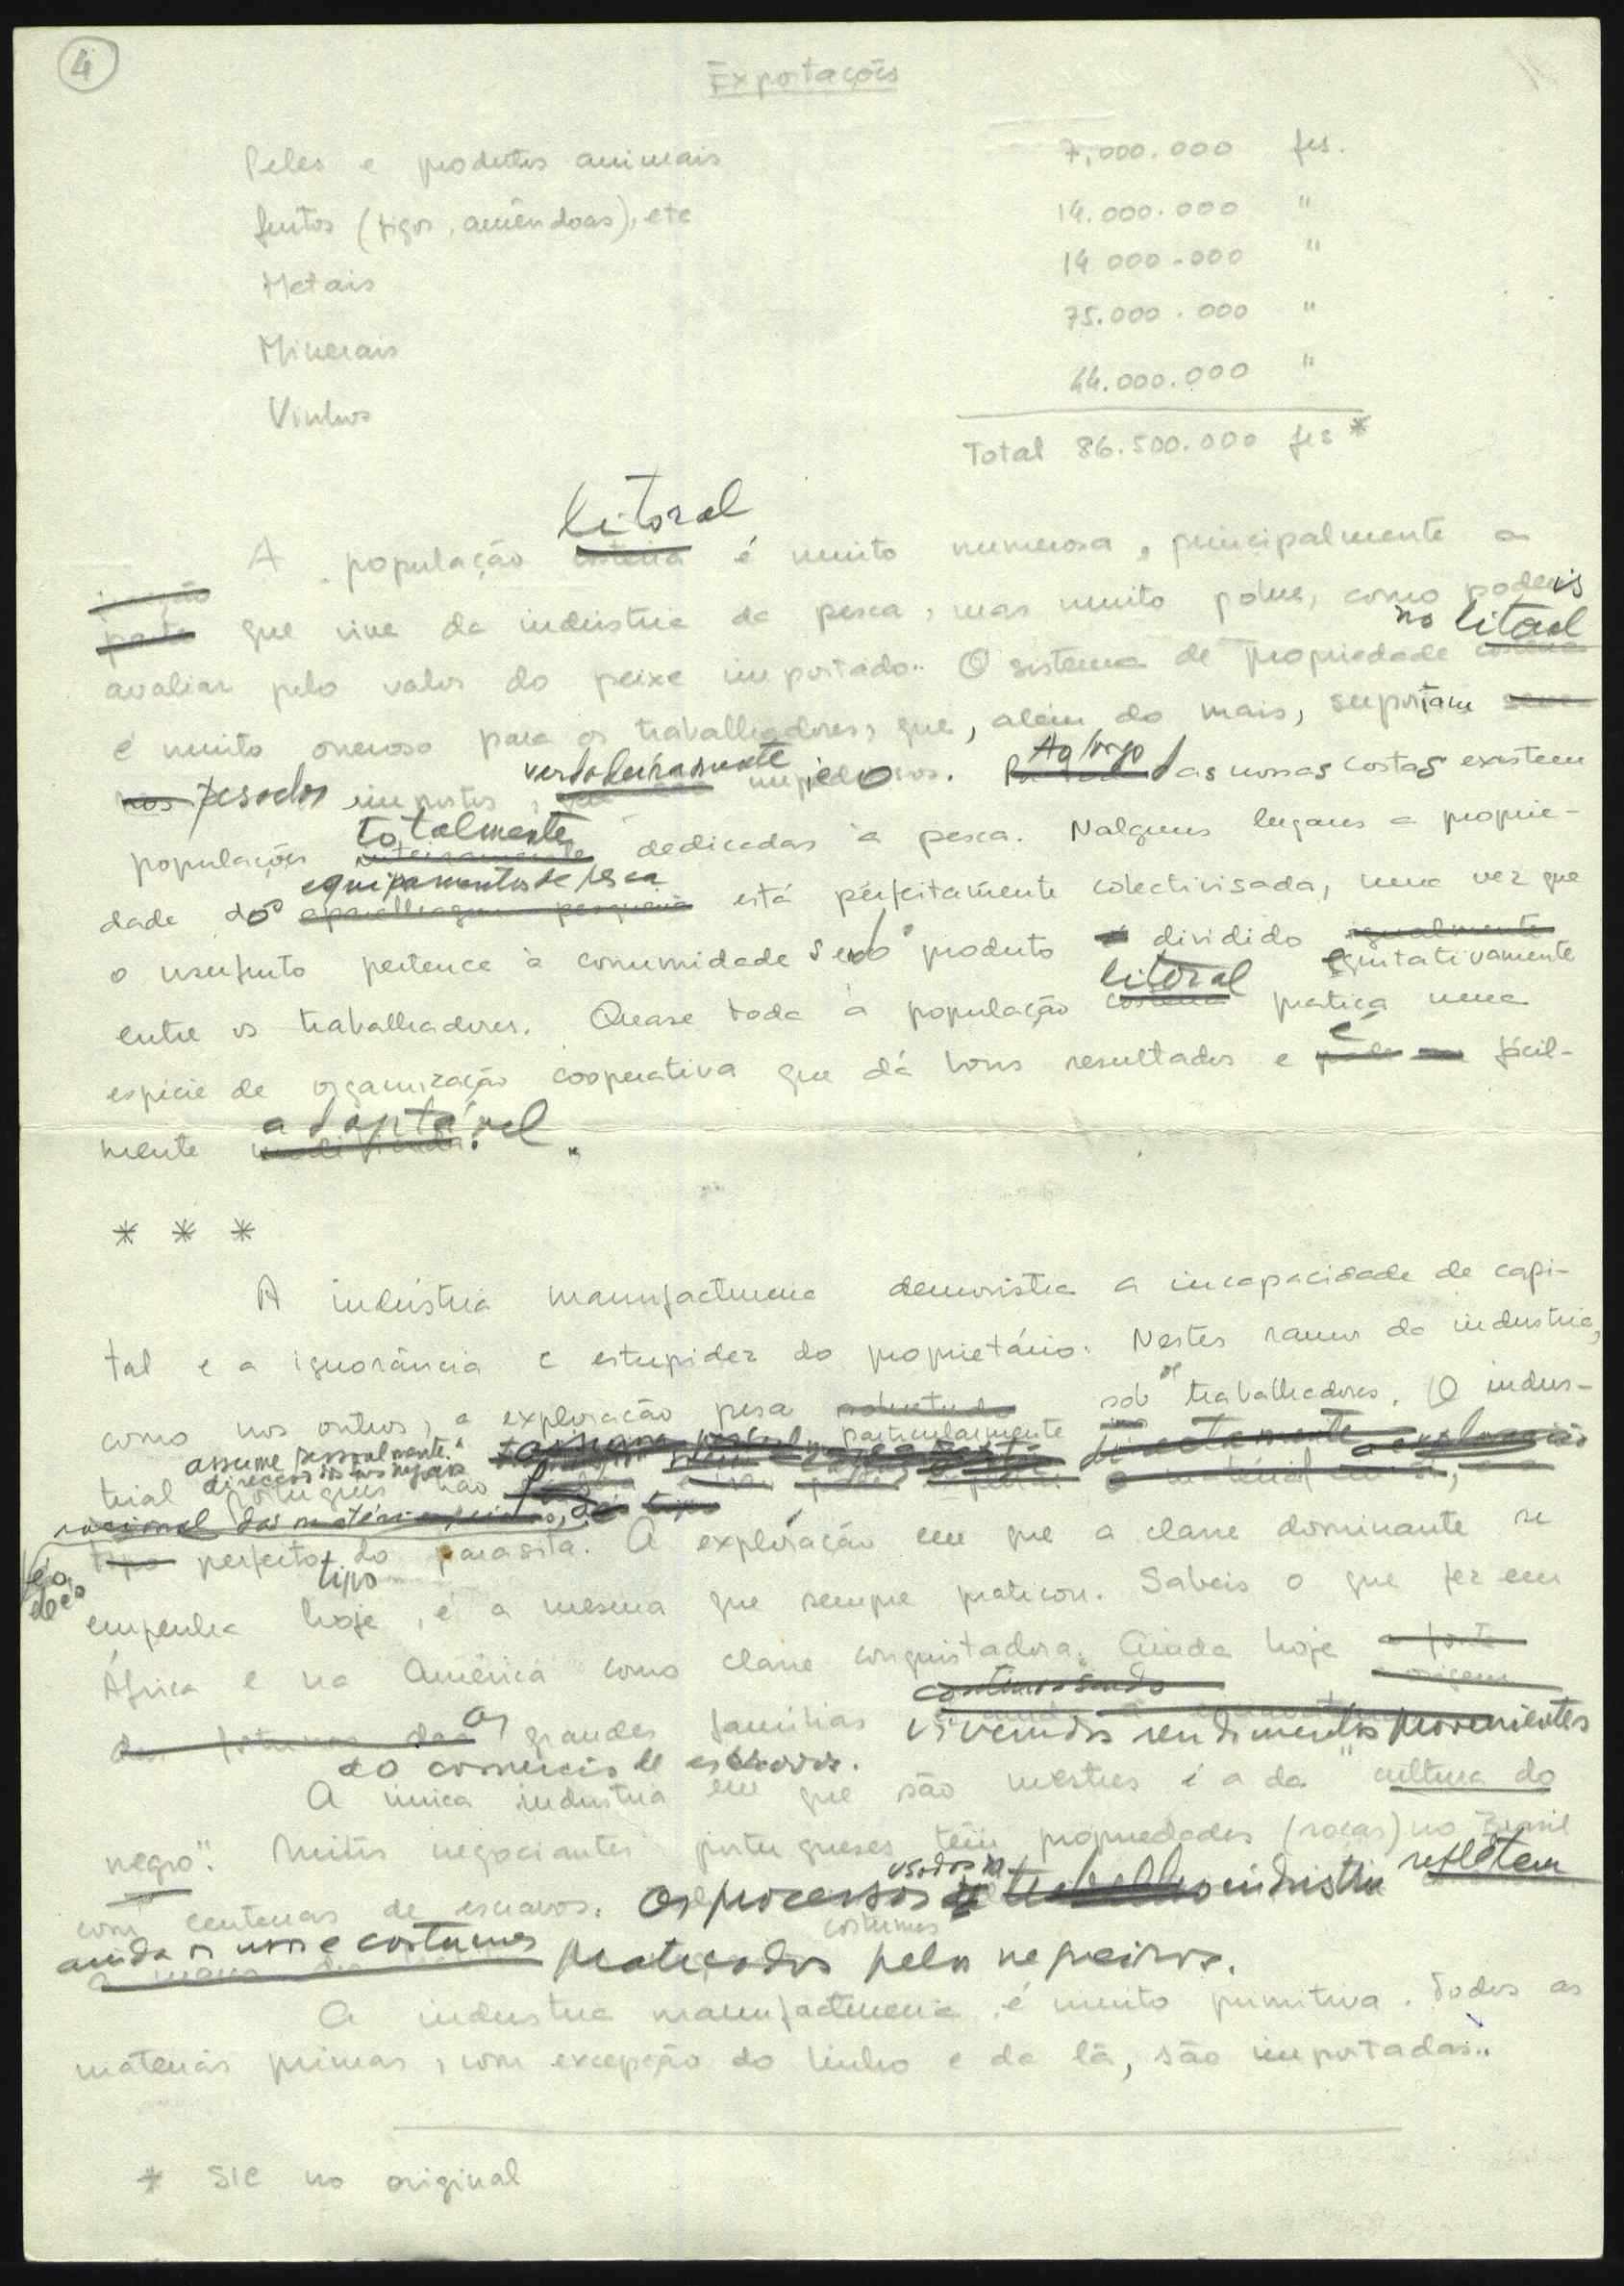 4
Exportações
Peles e produtos animais 7.000.000 frs.
frutos (figos, amêndoas), etc 14.000.000 "
Metais 14 000.000 "
Minerais 75.000.000 "
Vinhos 44.000.000 "
Total 86.500.000 frs *
litoral
A população costeira é muito numerosa, principalmente a
parte que vive da indústria da pesca, mas muito pobre, como podeis
no litoral
avaliar pelo valor do peixe importado. O sistema de propriedade costeira
é muito oneroso para os trabalhadores, que, além do mais, suportam
pesados impostos, verdadeiramente impiedosos. Ao longo das nossas costas existem
totalmente
populações inteiramente dedicadas à pesca. Nalguns lugares a proprie-
equipamentos de pesca
dade dos aparelhagem pesqueira está perfeitamente colectivisada, uma vez que
o usufruto pertence à comunidade sendo o produto é dividido igualmente
litoral equitativamente
entre os trabalhadores. Quase toda a população costeira pratica uma
é
espécie de organização cooperativa que dá bons resultados e pode ser fácil-
adaptável.
mente modificada.
* * *
A indústria manufactureira demonstra a incapacidade de capi-
tal e a ignorância e estupidez do proprietário. Nestes ramos da industria,
como nos outros, a exploração pesa sobretudo sob os trabalhadores. O indus-
particularmente
assume pessoalmente a
direcção dos seus negócios
trial Português não
racional das matérias primas,
tipo perfeito do parasita. A exploração em que a classe dominante se
tipo
empenha hoje, é a mesma que sempre praticou. Sabeis o que fez em
África e na América como classe conquistadora. Ainda hoje a fonte
origem
continua sendo
das fortunas das as grandes famílias vivem dos rendimentos provenientes
do comércio de escravos.
A única industria em que são mestres é a da "cultura do
negro". Muitos negociantes portugueses têm propriedades (roças) no Brasil
usados na
com centenas de escravos. Os processos de trabalho industria reflétem
costumes
ainda os usos e costumes praticados pelos negreiros.
A industria manufactureira é muito primitiva. Todas as
materias primas, com excepção do linho e da lã, são importadas..
* SIC no original